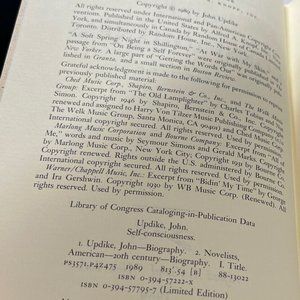 K N O P F
Copyright © 1989 by John Updike
All rights reserved under International and Pan-American
York, and simultaneously in Canada by Random House
Toronto. Distributed by Random House, Inc., New York.
"A Soft Spring Night in Shillington," "At War with My Skin," and
passage from "On Being a Self Forever" were originally published in The
New Yorker. A part of "Getting the Words Out" was
lished in Granta, and a small section in Boston Review.
Grateful acknowledgment is made to the following for permission to reprint
previously published material:
Shapiro, Bernstein & Co., Inc., and The Welk Music
Group: Excerpt from "The Old Lamplighter" by Charles Tobias and
Simon. Copyright 1946 by Shapiro, Bernstein & Co., Inc.
renewed and assigned to Harry Von Tilzer Music Publishing Company
The Welk Music Group, Santa Monica, CA 90401) and
Co., Inc. International copyright secured. All rights reserved. Used by permission.
Marlong Music Corporation and Bourne Company: Excerpt from
Me," words and music by Seymour Simons and Gerald Marks. Copyright
by Marlong Music Corp., New York City. Copyright
Copyright renewed. Rights outside the U.S. administered by Bourne Co.
International copyright secured. All rights reserved. Used by permission.
Warner/Chappell Music, Inc.: Excerpt from "Bidin' My Time" by George
and Ira Gershwin. Copyright 1930 by WB Music Corp. (Renewed). All
rights reserved. Used by permission.
Library of Congress Cataloging-in-Publication Data
Updike, John.
Self-consciousness.
1. Updike, John—Biography. 2. Novelists,
American—20th century—Biography. I. Title.
PS3571.P4Z475 1989 813'.54 [B] 88-13022
ISBN 0-394-57222-X
ISBN 0-394-57795-7 (Limited Edition)